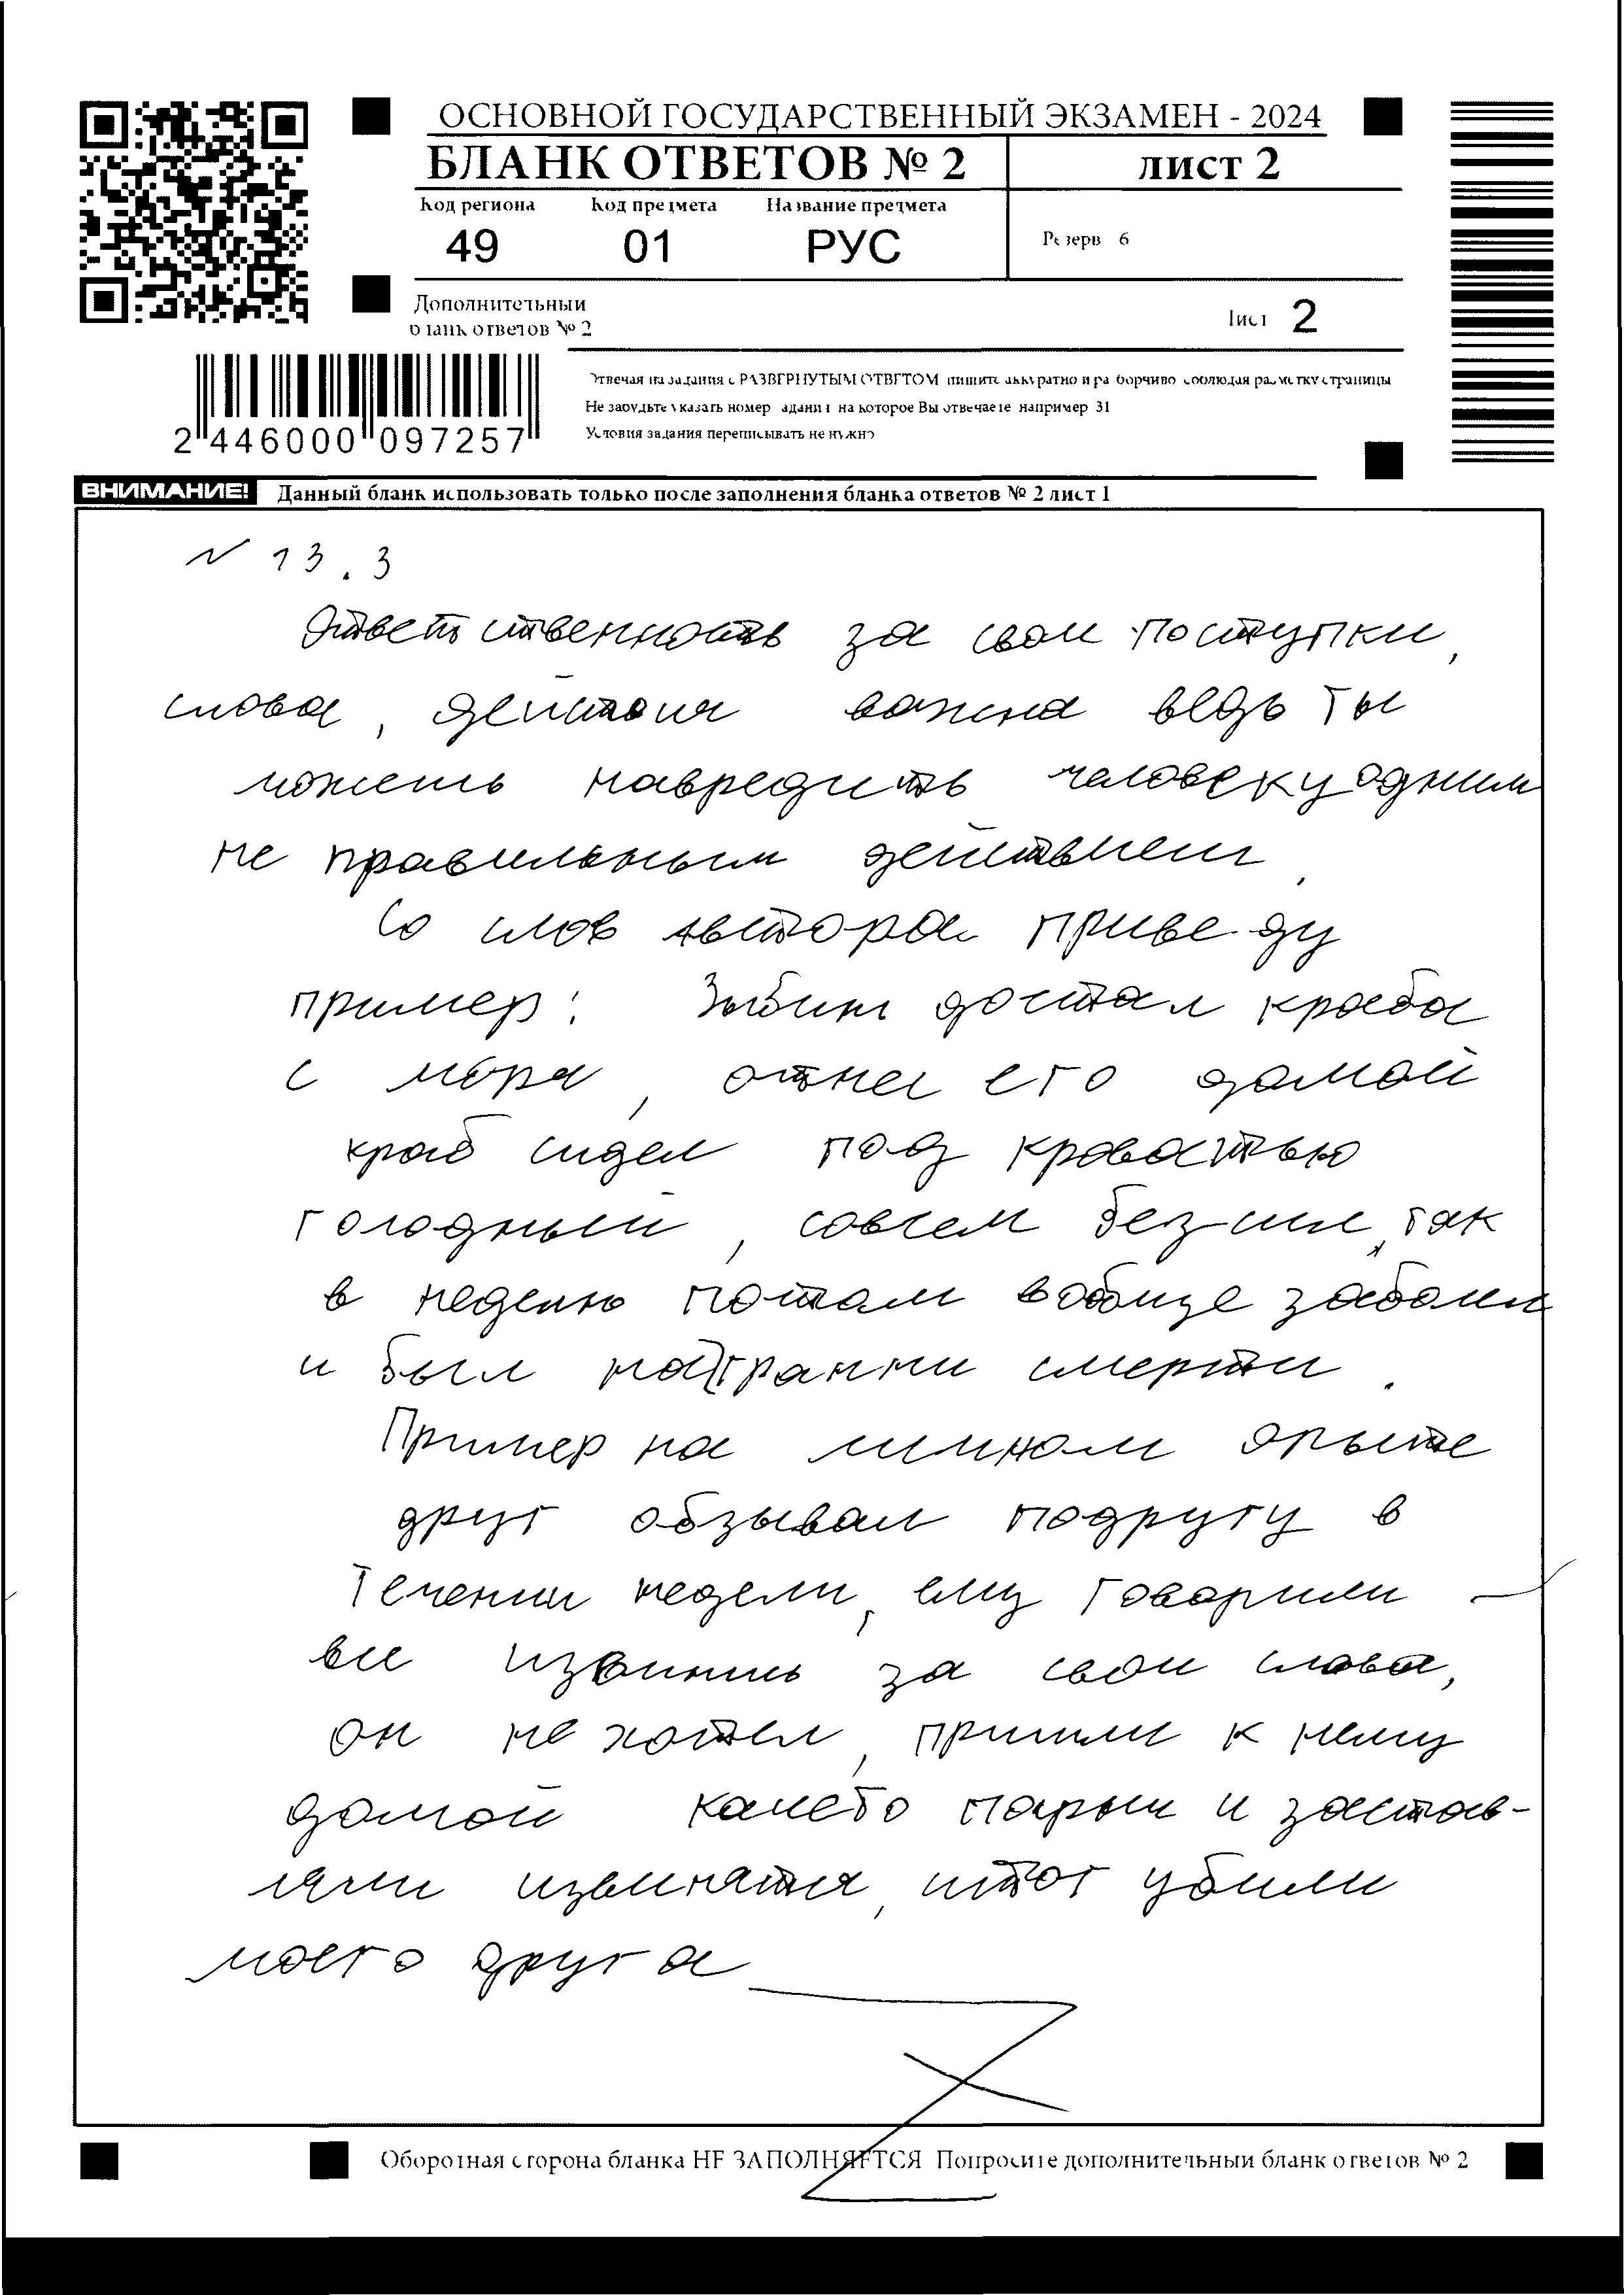 ОСНОВНОЙ ГОСУДАРСТВЕННЫЙ ЭКЗАМЕН - 2024
БЛАНК ОТВЕТОВ № 2
лист 2
Код региона Код предмета Название предмета
49 01 РУС
Резерв 6
Дополнительный
бланк ответов № 2
Лист 2
Отвечая на задания с РАЗВЕРНУТЫМ ОТВЕТОМ пишите аккуратно и разборчиво соблюдая разметку страницы
Не забудьте указать номер задания на которое Вы отвечаете например 31
Условия задания переписывать не нужно
2 446000 097257
ВНИМАНИЕ! Данный бланк использовать только после заполнения бланка ответов № 2 лист 1
N 13.3
Ответственность за свои поступки,
слова, действия важна ведь ты
можешь навредить человеку одним
не правильным действием.
Со слов автора приведу
пример: достал краба
с моря, отнес его домой
краб сидел под кроватью
голодный, совсем без сил, так
в неделю потом вообще
и был на грани смерти.
Пример на личном опыте
друг обзывал подругу в
течении недели, ему говорили -
все извинись за свои слова,
он не хотел, пришли к нему
домой парни и застав-
ляли извинятся, итог убили
моего друга
Оборотная сторона бланка НЕ ЗАПОЛНЯЕТСЯ Попросите дополнительный бланк ответов № 2